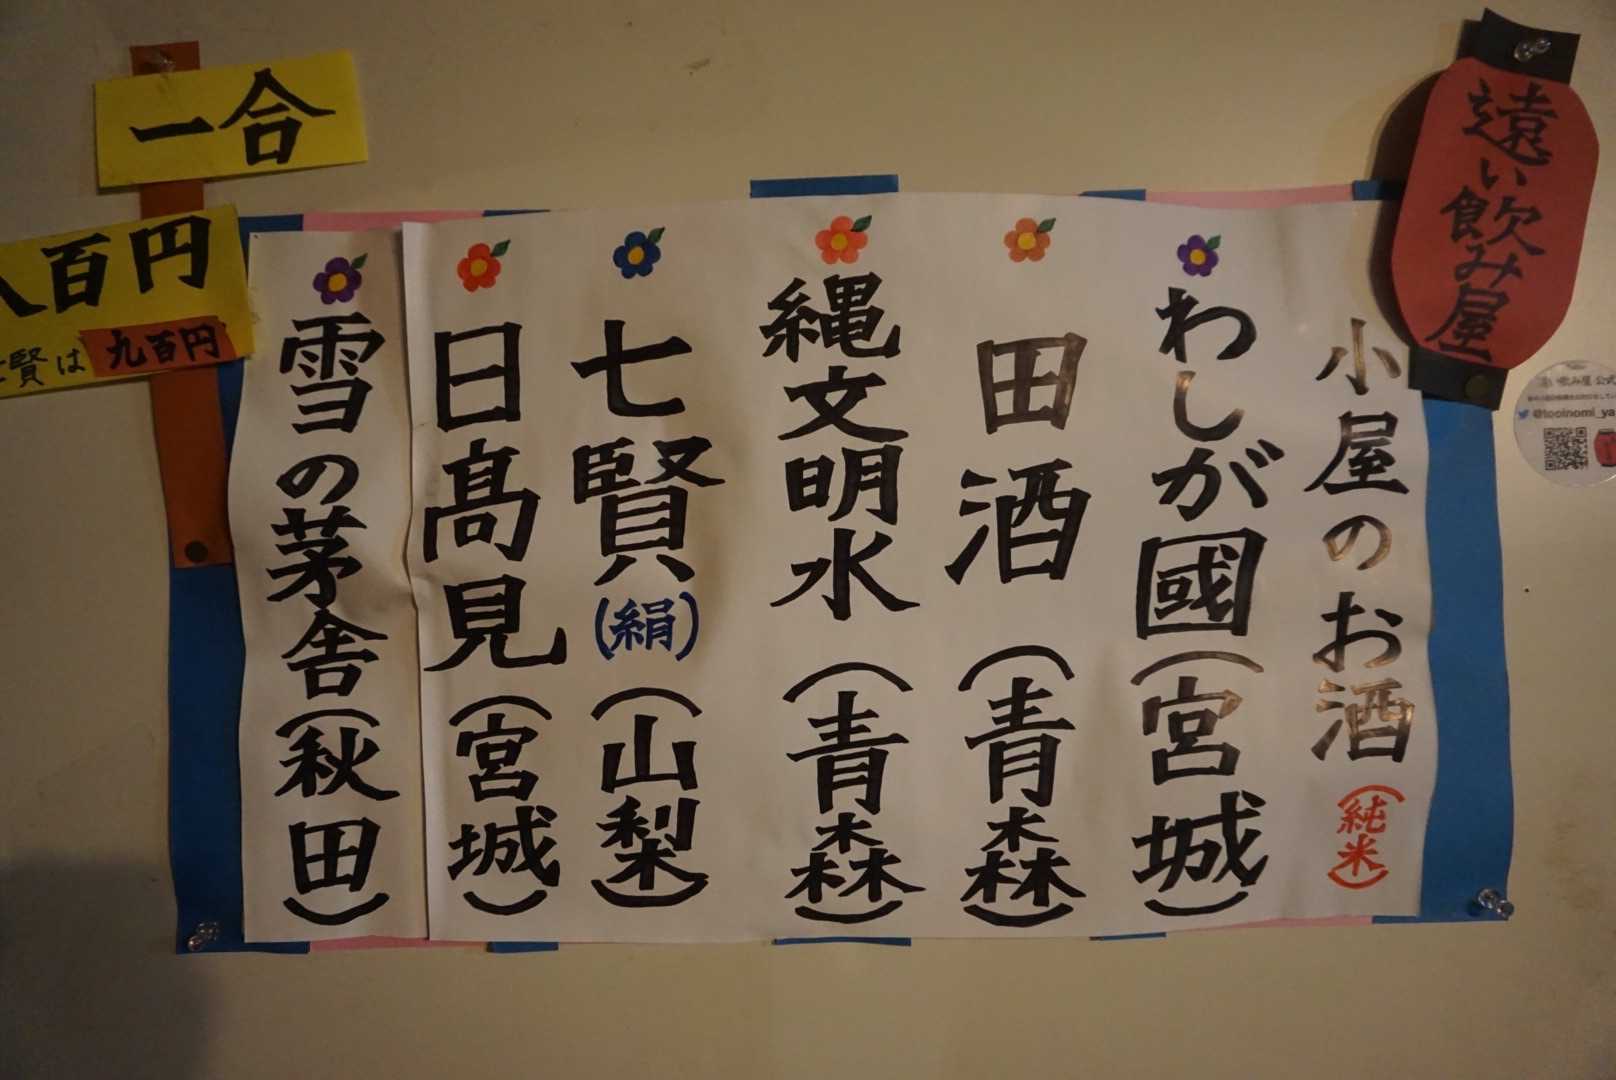 遠い飲み屋
小屋のお酒(純米)
わしが國(宮城)
田酒(青森)
縄文明水(青森)
七賢(絹)(山梨)
日髙見(宮城)
雪の茅舎(秋田)
一合
八百円
賢は九百円
@tooinomi_ya